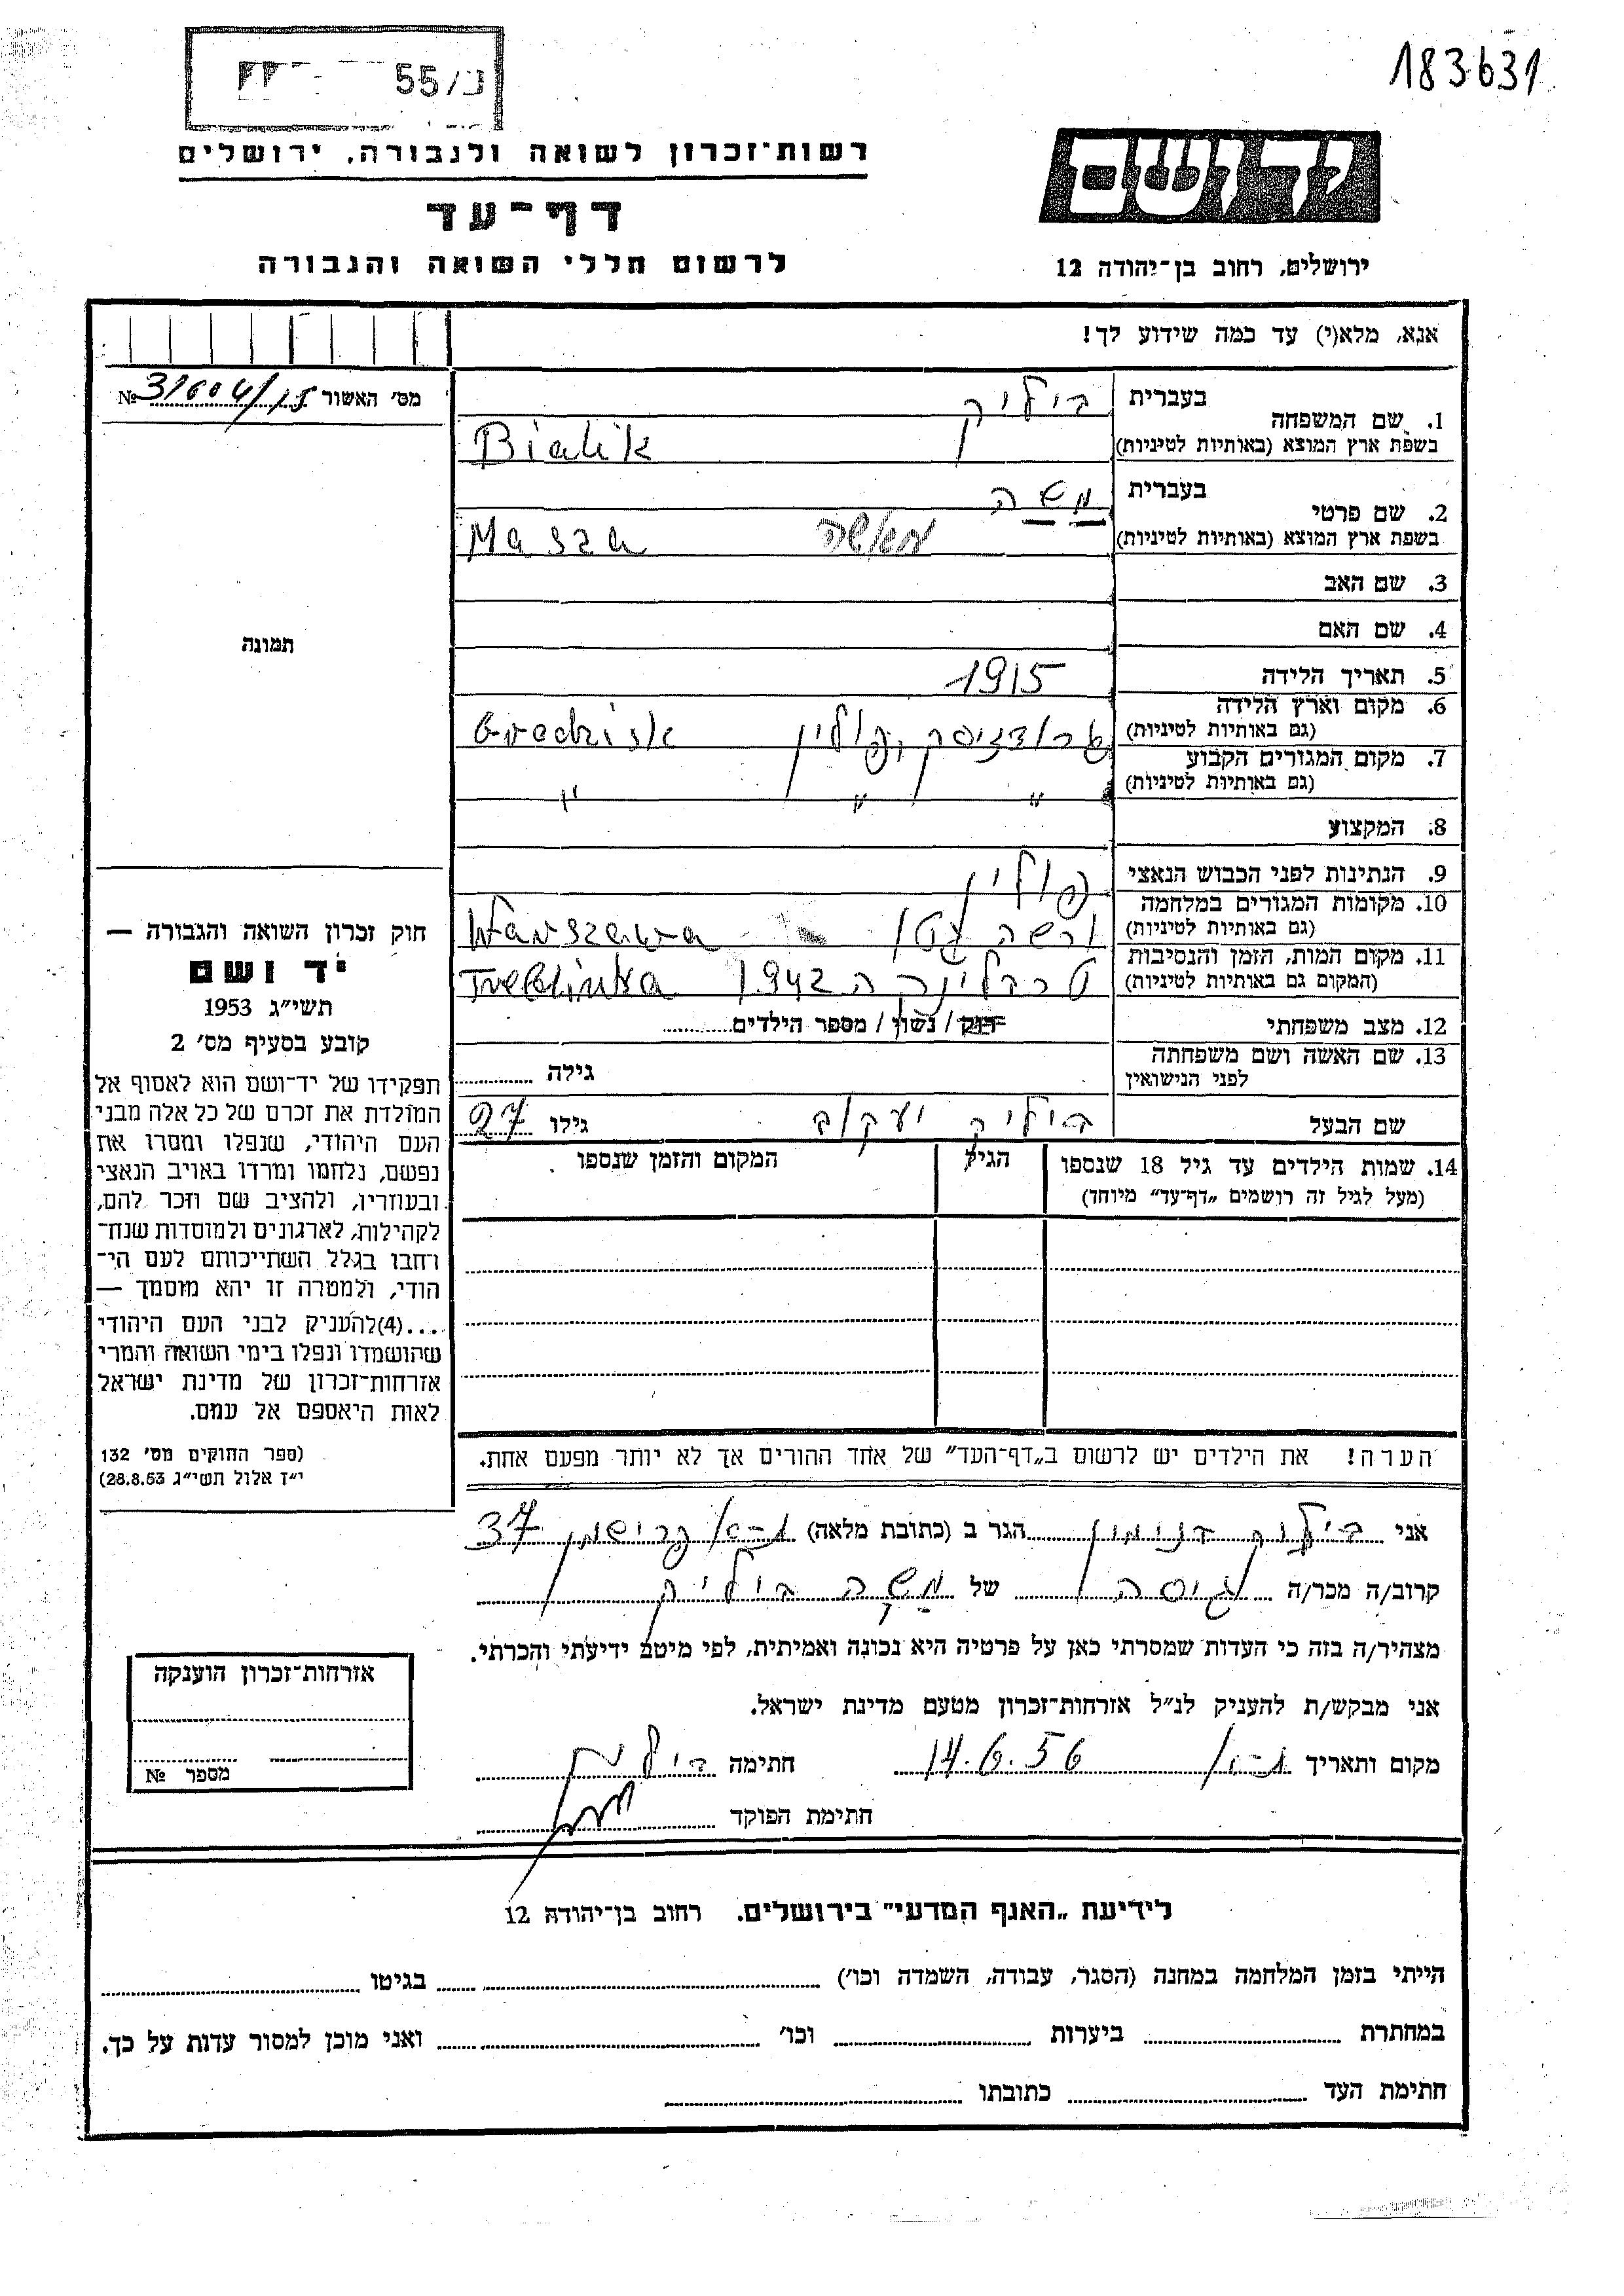 183631
55/נ
רשות־זכרון לשואה ולגבורה, ירושלים
דף־עד
לרשום חללי השואה והגבורה
יד ושם
ירושלים, רחוב בן־יהודה 12
אנא, מלא(י) עד כמה שידוע לך!
מס׳ האשור 31604/15 №
1. שם המשפחה
בעברית ביליק
בשפת ארץ המוצא (באותיות לטיניות) Bialik
2. שם פרטי
בעברית משה
בשפת ארץ המוצא (באותיות לטיניות) מאשה Masza
3. שם האב
4. שם האם
5. תאריך הלידה 1915
6. מקום וארץ הלידה
(גם באותיות לטיניות) גרודזיסק, פולין Grodzisk
7. מקום המגורים הקבוע
(גם באותיות לטיניות) " " "
8. המקצוע
9. הנתינות לפני הכבוש הנאצי פולין
10. מקומות המגורים במלחמה
(גם באותיות לטיניות) ורשה גטו Warszawa
11. מקום המות, הזמן והנסיבות
(המקום גם באותיות לטיניות) טרבלינקה 1942 Treblinka
12. מצב משפחתי רוק / נשוי / מספר הילדים
13. שם האשה ושם משפחתה
לפני הנישואין גילה
שם הבעל ביליק יעקוב גילו 27
14. שמות הילדים עד גיל 18 שנספו הגיל המקום והזמן שנספו
(מעל לגיל זה רושמים „דף־עד” מיוחד)
הערה! את הילדים יש לרשום ב„דף־העד” של אחד ההורים אך לא יותר מפעם אחת.
תמונה
חוק זכרון השואה והגבורה —
יד ושם
תשי״ג 1953
קובע בסעיף מס׳ 2
תפקידו של יד־ושם הוא לאסוף אל
המולדת את זכרם של כל אלה מבני
העם היהודי, שנפלו ומסרו את
נפשם, נלחמו ומרדו באויב הנאצי
ובעוזריו, ולהציב שם וזכר להם,
לקהילות, לארגונים ולמוסדות שנח־
רחבו בגלל השתייכותם לעם הי־
הודי, ולמטרה זו יהא מוסמך —
...(4)להעניק לבני העם היהודי
שהושמדו ונפלו בימי השואה והמרי
אזרחות־זכרון של מדינת ישראל
לאות היאספם אל עמם.
(ספר החוקים מס׳ 132
י״ז אלול תשי״ג 28.8.53)
אני ביליק הגר ב (כתובת מלאה) ת-א 37
קרוב/ה מכר/ה גיסה של משה ביליק
מצהיר/ה בזה כי העדות שמסרתי כאן על פרטיה היא נכונה ואמיתית, לפי מיטב ידיעתי והכרתי.
אני מבקש/ת להעניק לנ״ל אזרחות־זכרון מטעם מדינת ישראל.
מקום ותאריך ת-א 14.6.56 חתימה
חתימת הפוקד
אזרחות־זכרון הוענקה
מספר №
לידיעת „האגף המדעי” בירושלים. רחוב בן־יהודה 12
הייתי בזמן המלחמה במחנה (הסגר, עבודה, השמדה וכו׳) בגיטו
במחתרת ביערות וכו׳ ואני מוכן למסור עדות על כך.
חתימת העד כתובתו